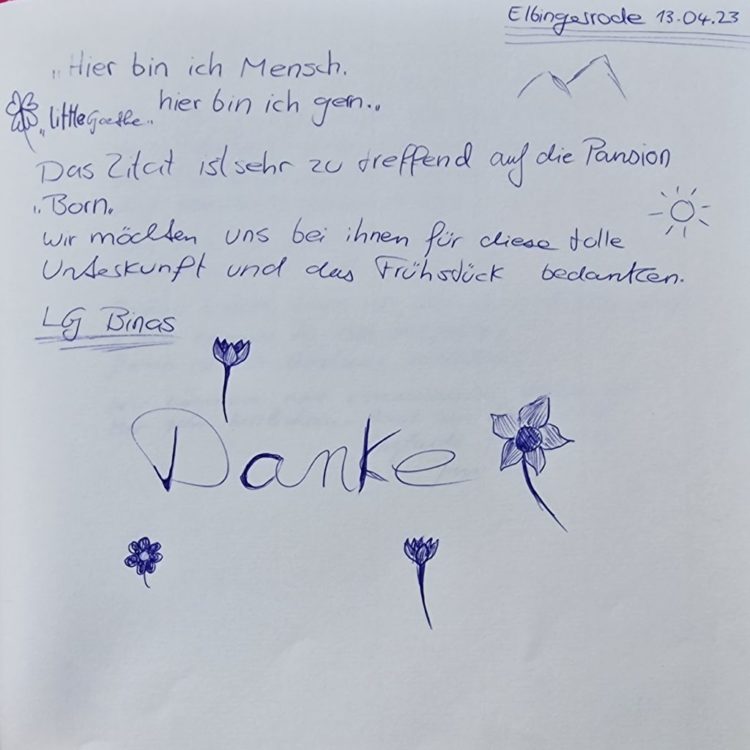 Elbingerode 13.04.23
„Hier bin ich Mensch.
hier bin ich gern."
„little Goethe"
Das Zitat ist sehr zu treffend auf die Pansion
„Born.
wir möchten uns bei ihnen für diese tolle
Unterkunft und das Frühstück bedanken.
LG Binas
Danke